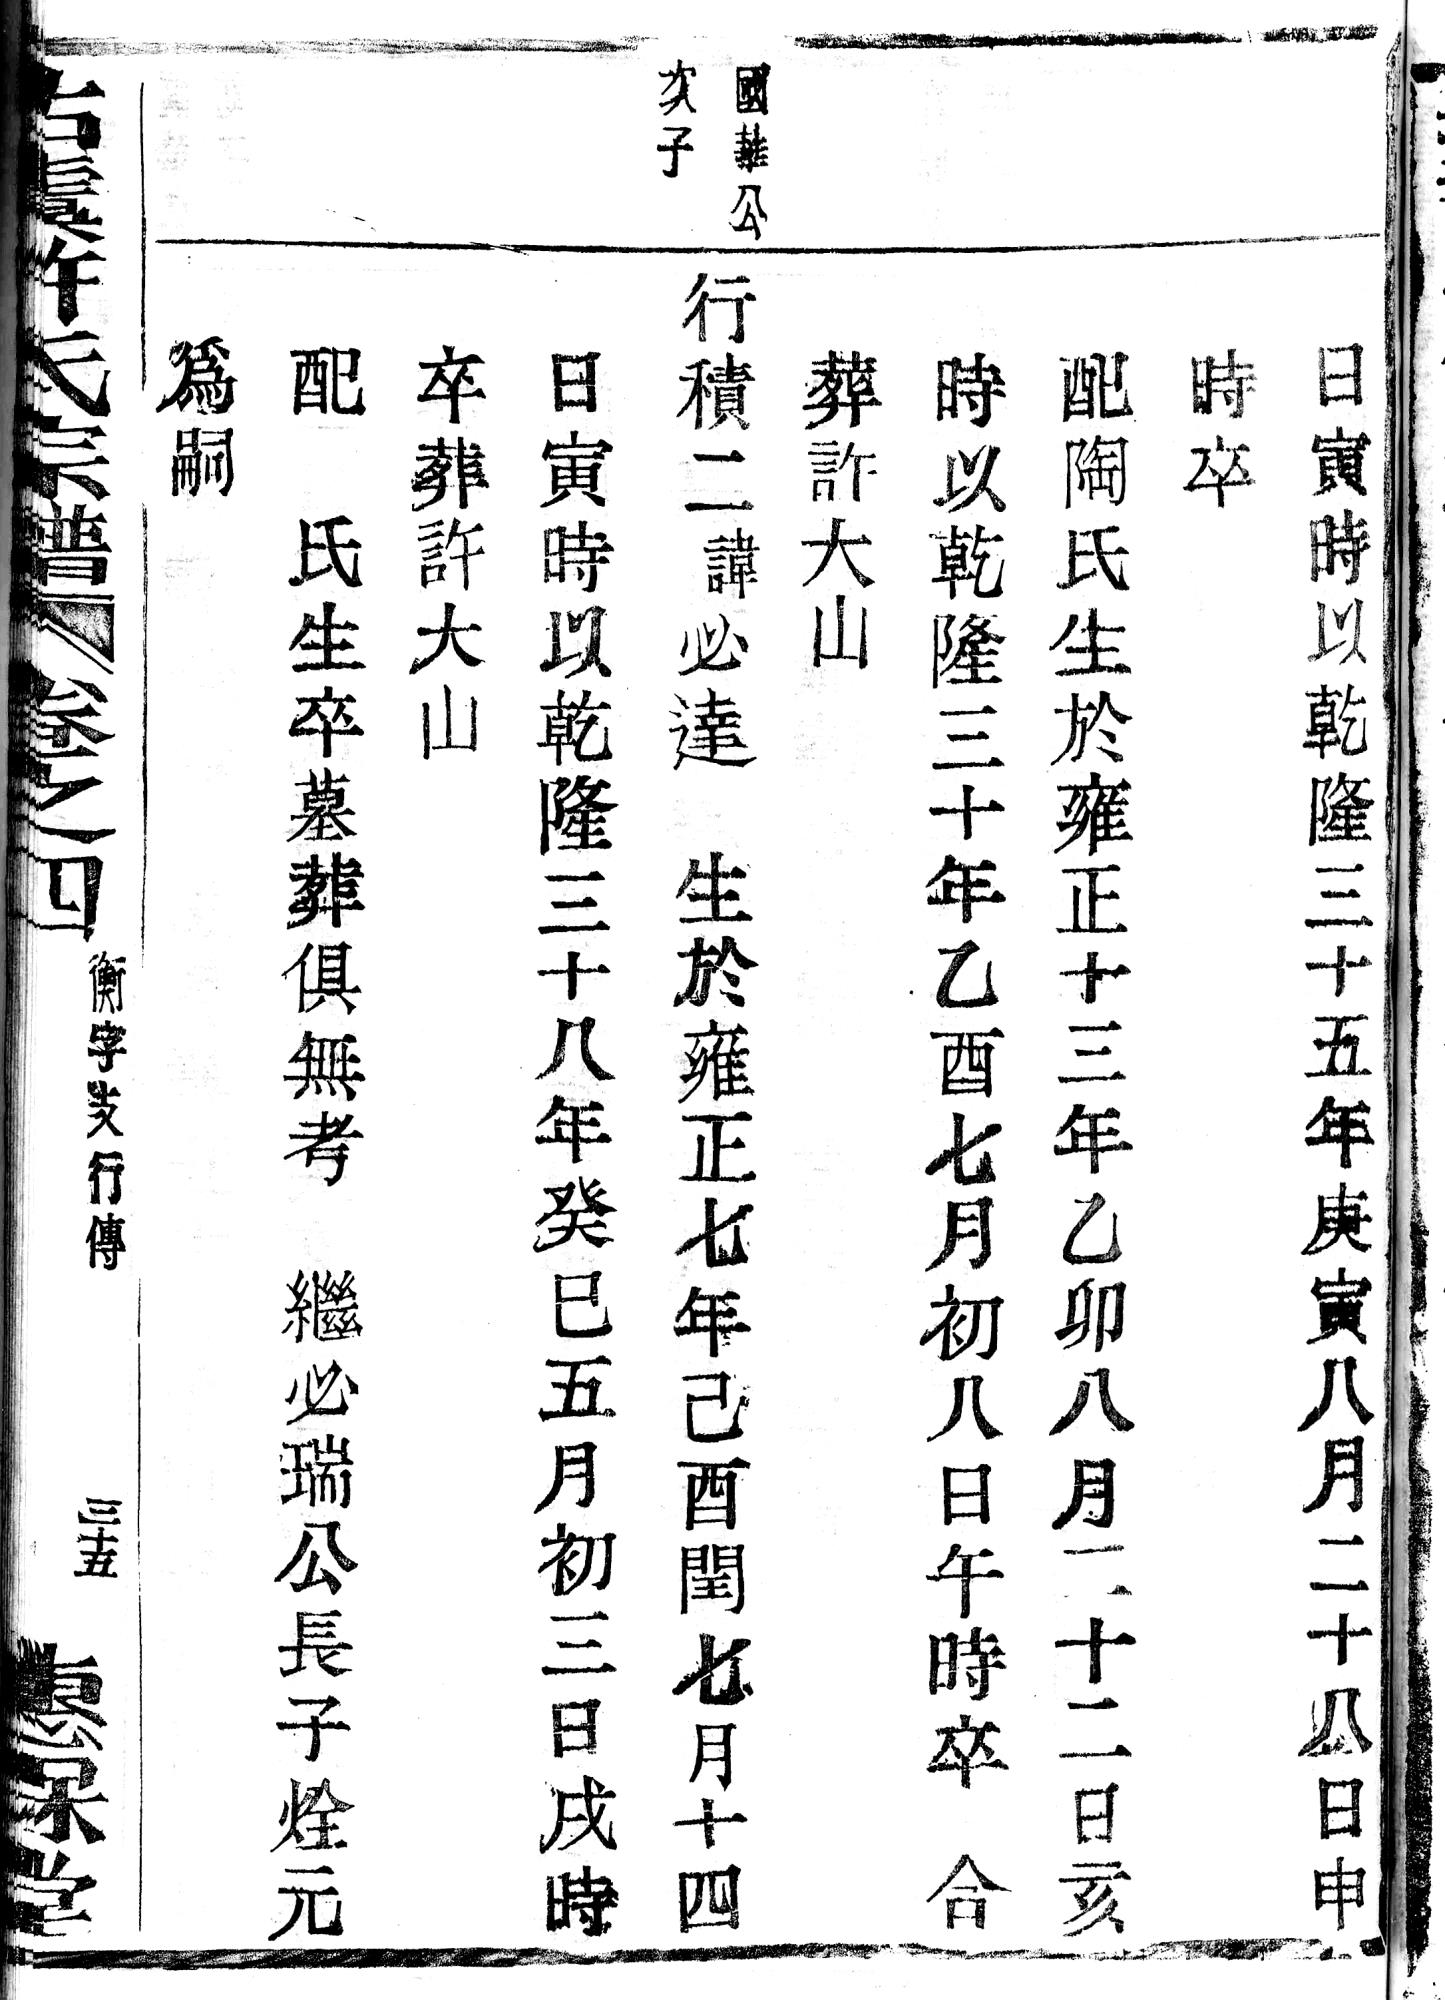 日寅時以乾隆三十五年庚寅八月二十八日申
時卒
配陶氏生於雍正十三年乙卯八月二十二日亥
時以乾隆三十年乙酉七月初八日午時卒 合
葬許大山
國華公
次子
行積二諱必達 生於雍正七年己酉閏七月十四
日寅時以乾隆三十八年癸巳五月初三日戌時
卒葬許大山
配 氏生卒墓葬俱無考 繼必瑞公長子烇元
為嗣
古虞許氏宗譜 卷之四
衡字支行傳
三十五
惠保堂